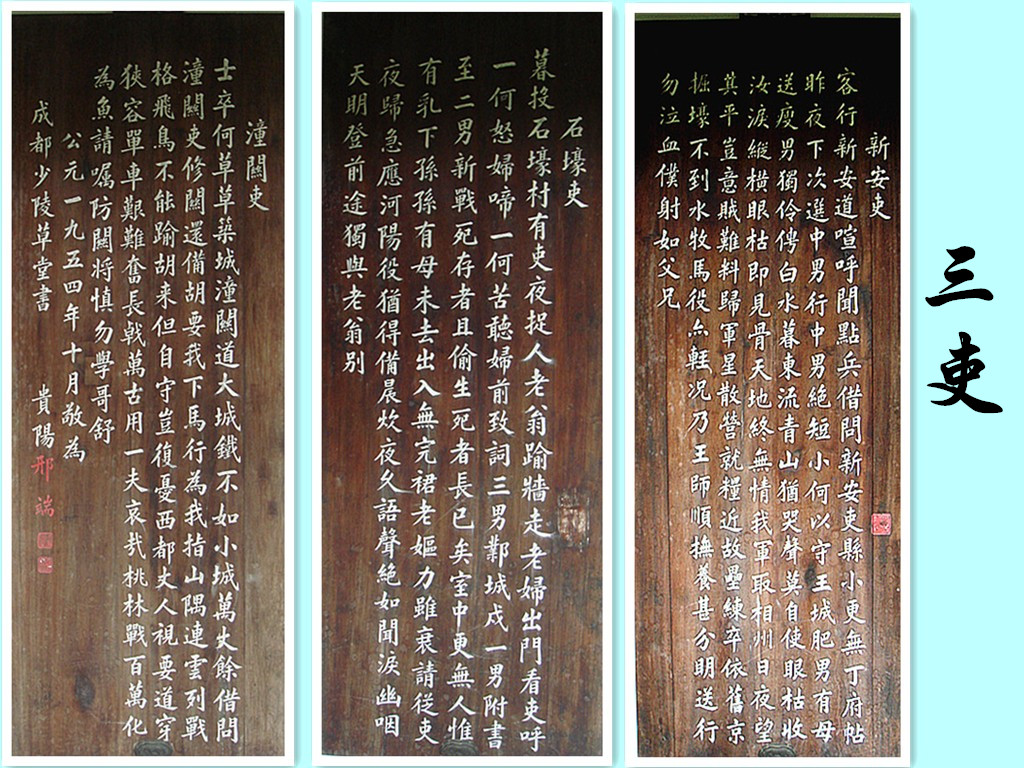 三吏
新安吏
客行新安道喧呼聞點兵借問新安吏縣小更無丁府帖
昨夜下次選中男行中男絶短小何以守王城肥男有母
送瘦男獨伶俜白水暮東流青山猶哭聲莫自使眼枯收
汝淚縱横眼枯即見骨天地終無情我軍取相州日夜望
其平豈意賊難料歸軍星散營就糧近故壘練卒依舊京
掘壕不到水牧馬役亦輕况乃王師順撫養甚分明送行
勿泣血僕射如父兄
石壕吏
暮投石壕村有吏夜捉人老翁踰牆走老婦出門看吏呼
一何怒婦啼一何苦聽婦前致詞三男鄴城戍一男附書
至二男新戰死存者且偷生死者長已矣室中更無人惟
有乳下孫孫有母未去出入無完裙老嫗力雖衰請從吏
夜歸急應河陽役猶得備晨炊夜久語聲絶如聞淚幽咽
天明登前途獨與老翁别
潼關吏
士卒何草草築城潼關道大城鐵不如小城萬丈餘借問
潼關吏修關還備胡要我下馬行為我指山隅連雲列戰
格飛鳥不能踰胡来但自守豈復憂西都丈人視要道窄
狹容單車艱難奮長戟萬古用一夫哀哉桃林戰百萬化
為魚請囑防關將慎勿學哥舒
公元一九五四年十月敬為
成都少陵草堂書 貴陽邢端